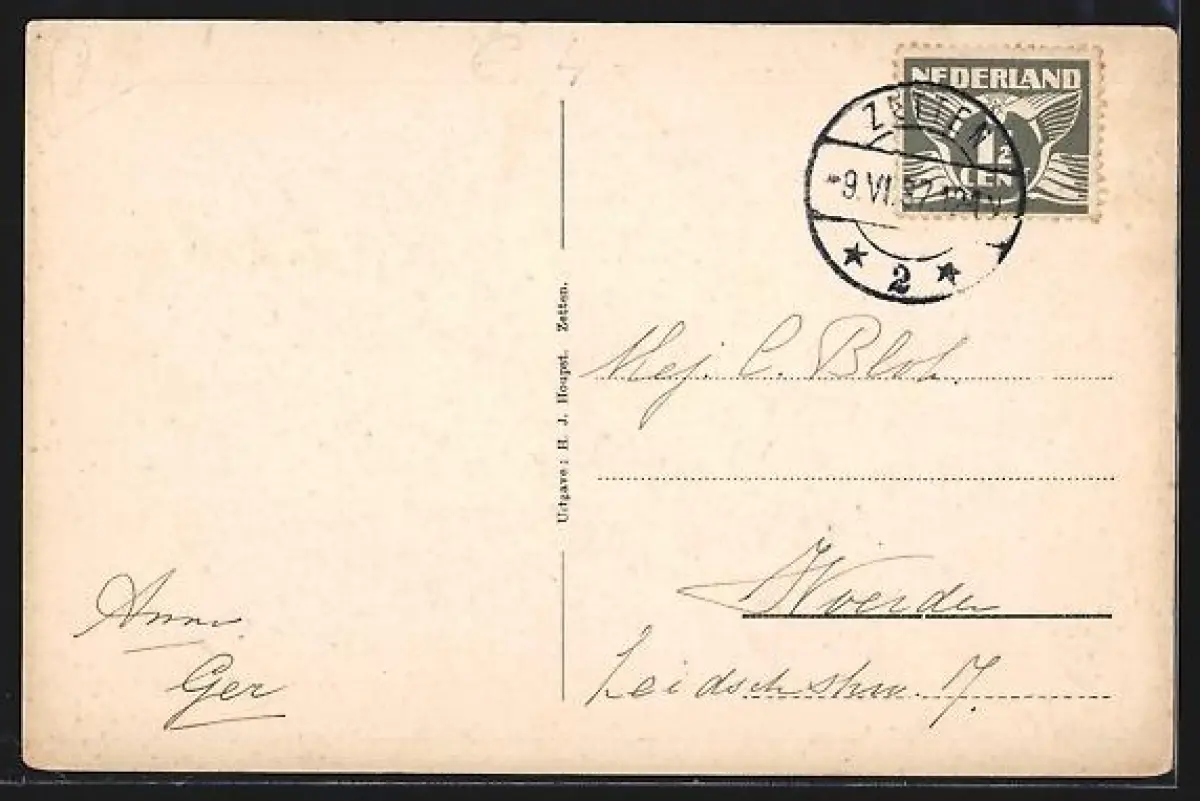 NEDERLAND
1½
CENT
ZETTEN
9.VI.37
2
Uitgave: H. J. Houpst. Zetten.
Mej. C. Blok.
Woerden
Leidschstrw. 7.
Ger